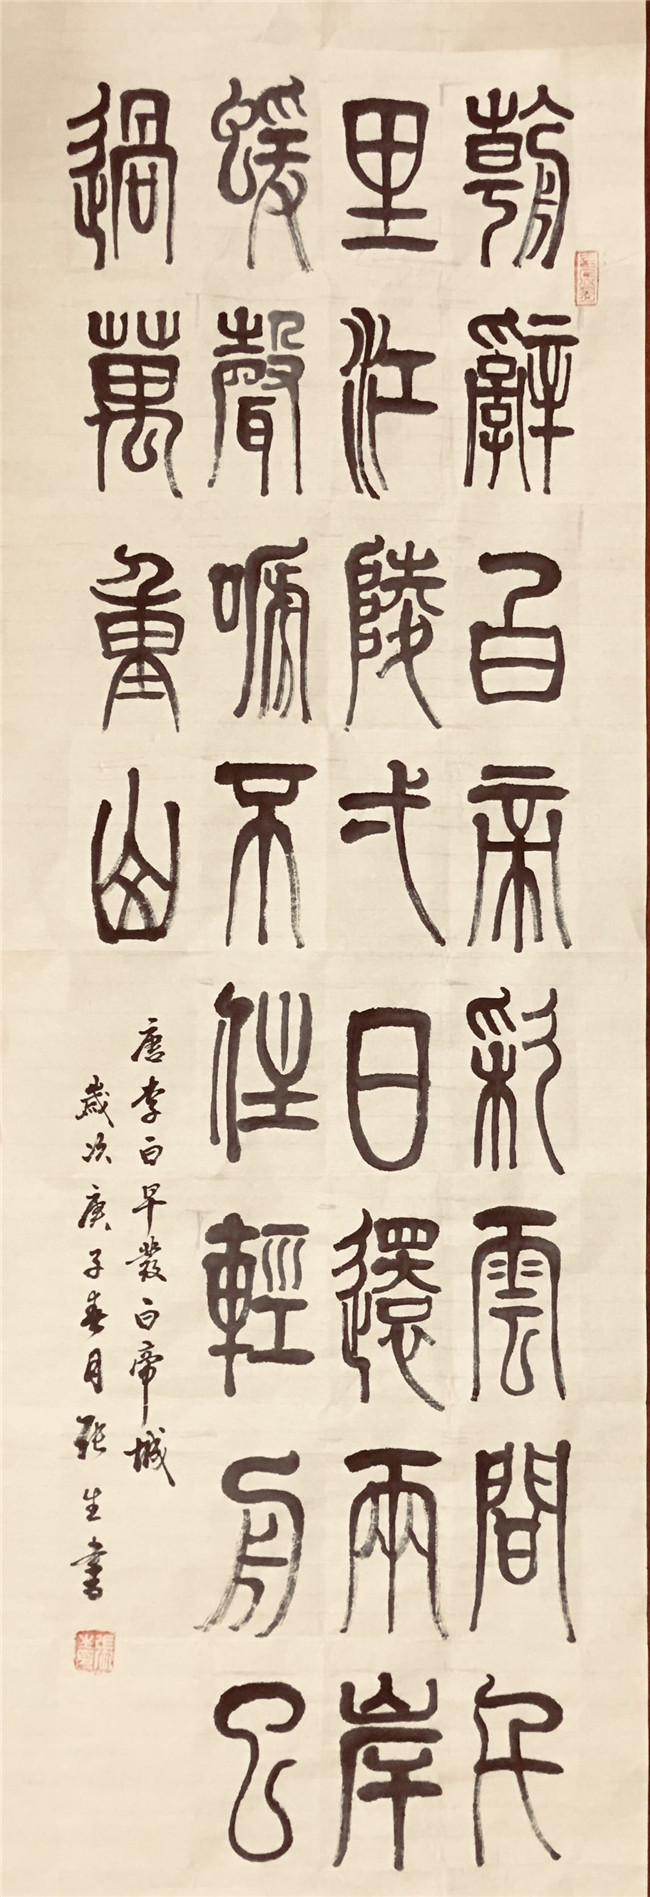 朝辭白帝彩雲間千
里江陵弌日還兩岸
蝯聲嗁不住輕舟已
過萬重山
唐李白早發白帝城
歲次庚子春月張生書